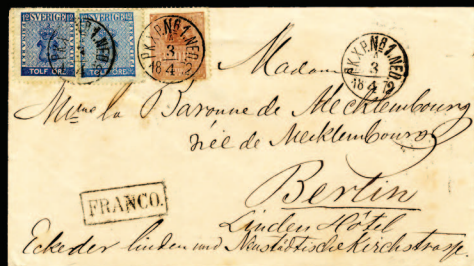 SVERIGE
SVERIGE
TOLF ÖRE.
TOLF ÖRE.
P.K.X.P.Nº1.NED.
3
4
18 72
P.K.X.P.Nº1.NED.
3
4
18 72
Madame
Mme la Baronne de Mecklembourg
née de Mecklembourg
Berlin
FRANCO.
Linden Hôtel
Ecke der linden und Neustädtische kirchstrasse.